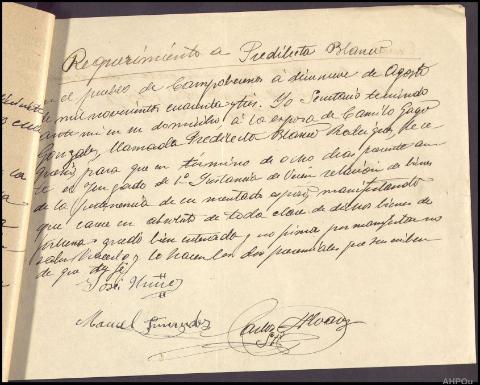 Requerimiento a Predilecta Blanco
en el pueblo de Campobecerros á diecinueve de Agosto
de mil novecientos cuarenta y tres. Yo Secretario teniendo
ante mi en su domicilio á la esposa de Camilo Gago
Gonzalez, llamada Predilecta Blanco Rodriguez, le re-
queri para que en término de ocho dias presente an-
te el Juzgado de 1ª Instancia de Verin relación de bienes
de la pertenencia de su mentado esposo, manifestando
que carece en absoluto de toda clase de dichos bienes de
fortuna quedó bien enterada y no firma por manifestar no
saber hacerlo y lo hacen los dos presenciales que suscriben
de que doy fé
José Nuñez
Manuel Fernandez
Carlos Alvarez
AHPOu